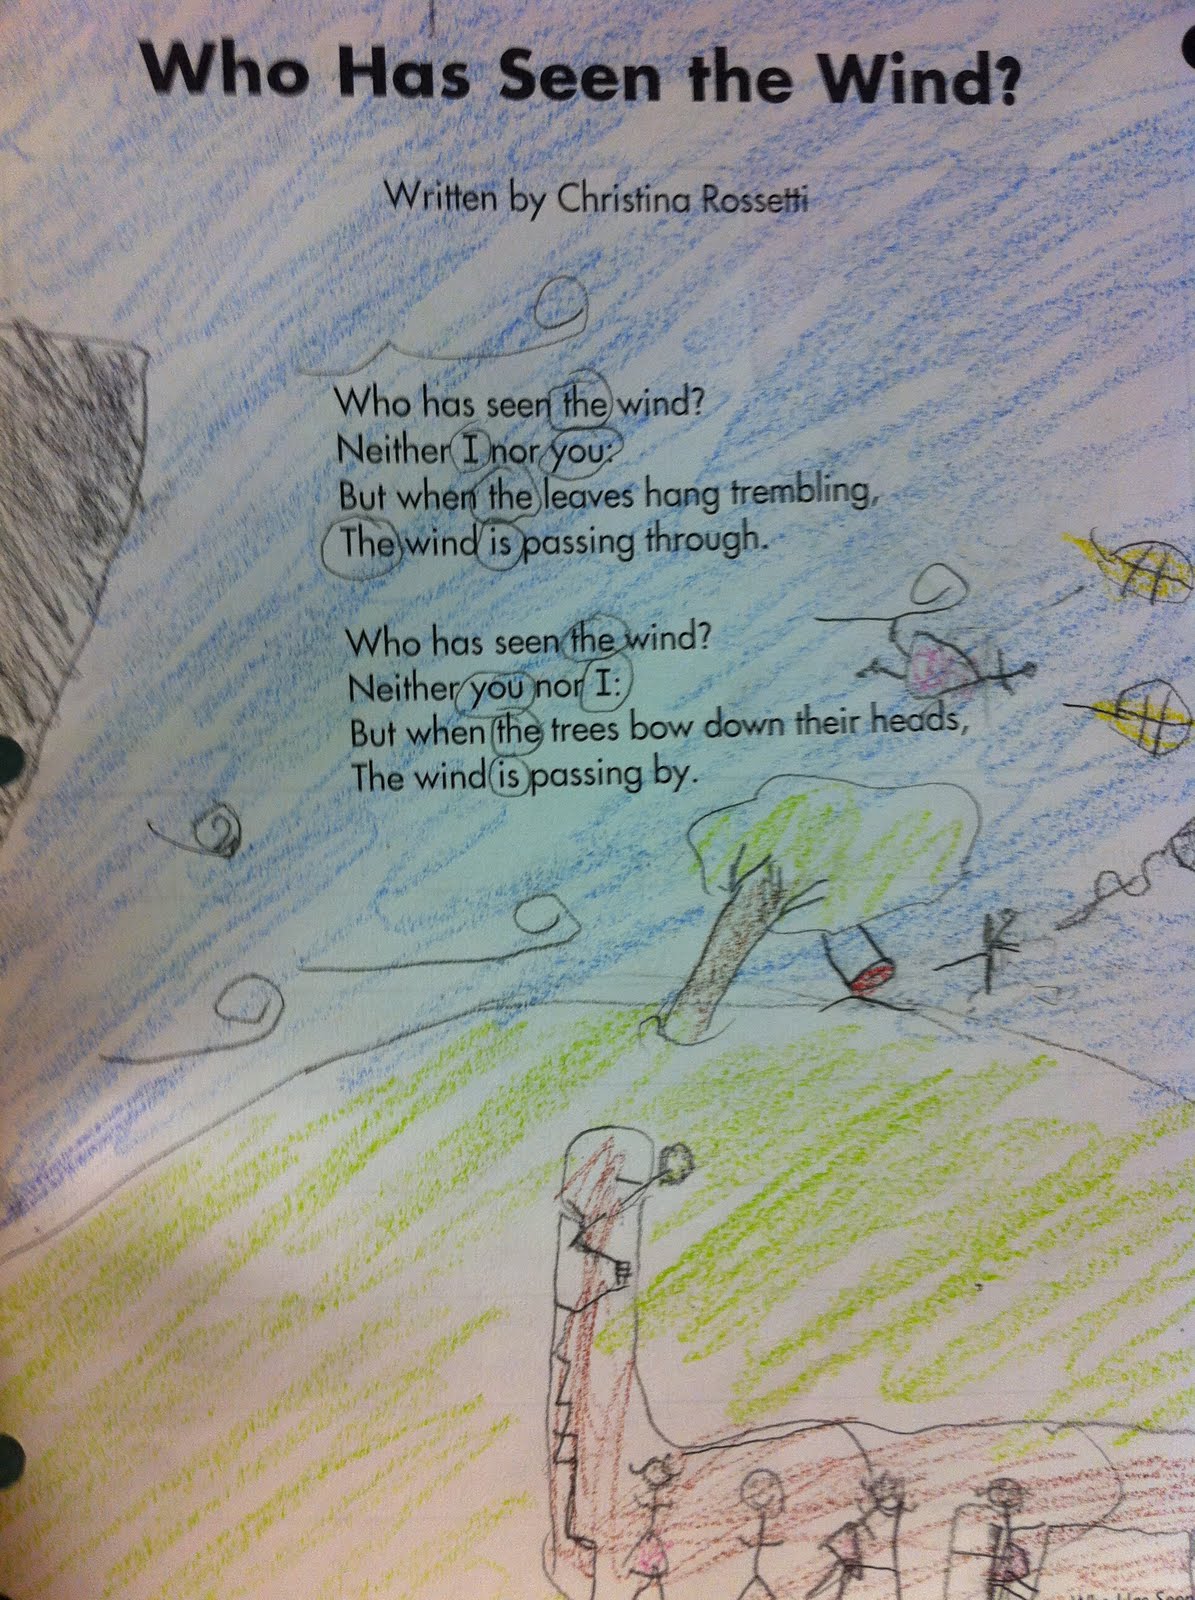 Who Has Seen the Wind?
Written by Christina Rossetti
Who has seen the wind?
Neither I nor you:
But when the leaves hang trembling,
The wind is passing through.
Who has seen the wind?
Neither you nor I:
But when the trees bow down their heads,
The wind is passing by.